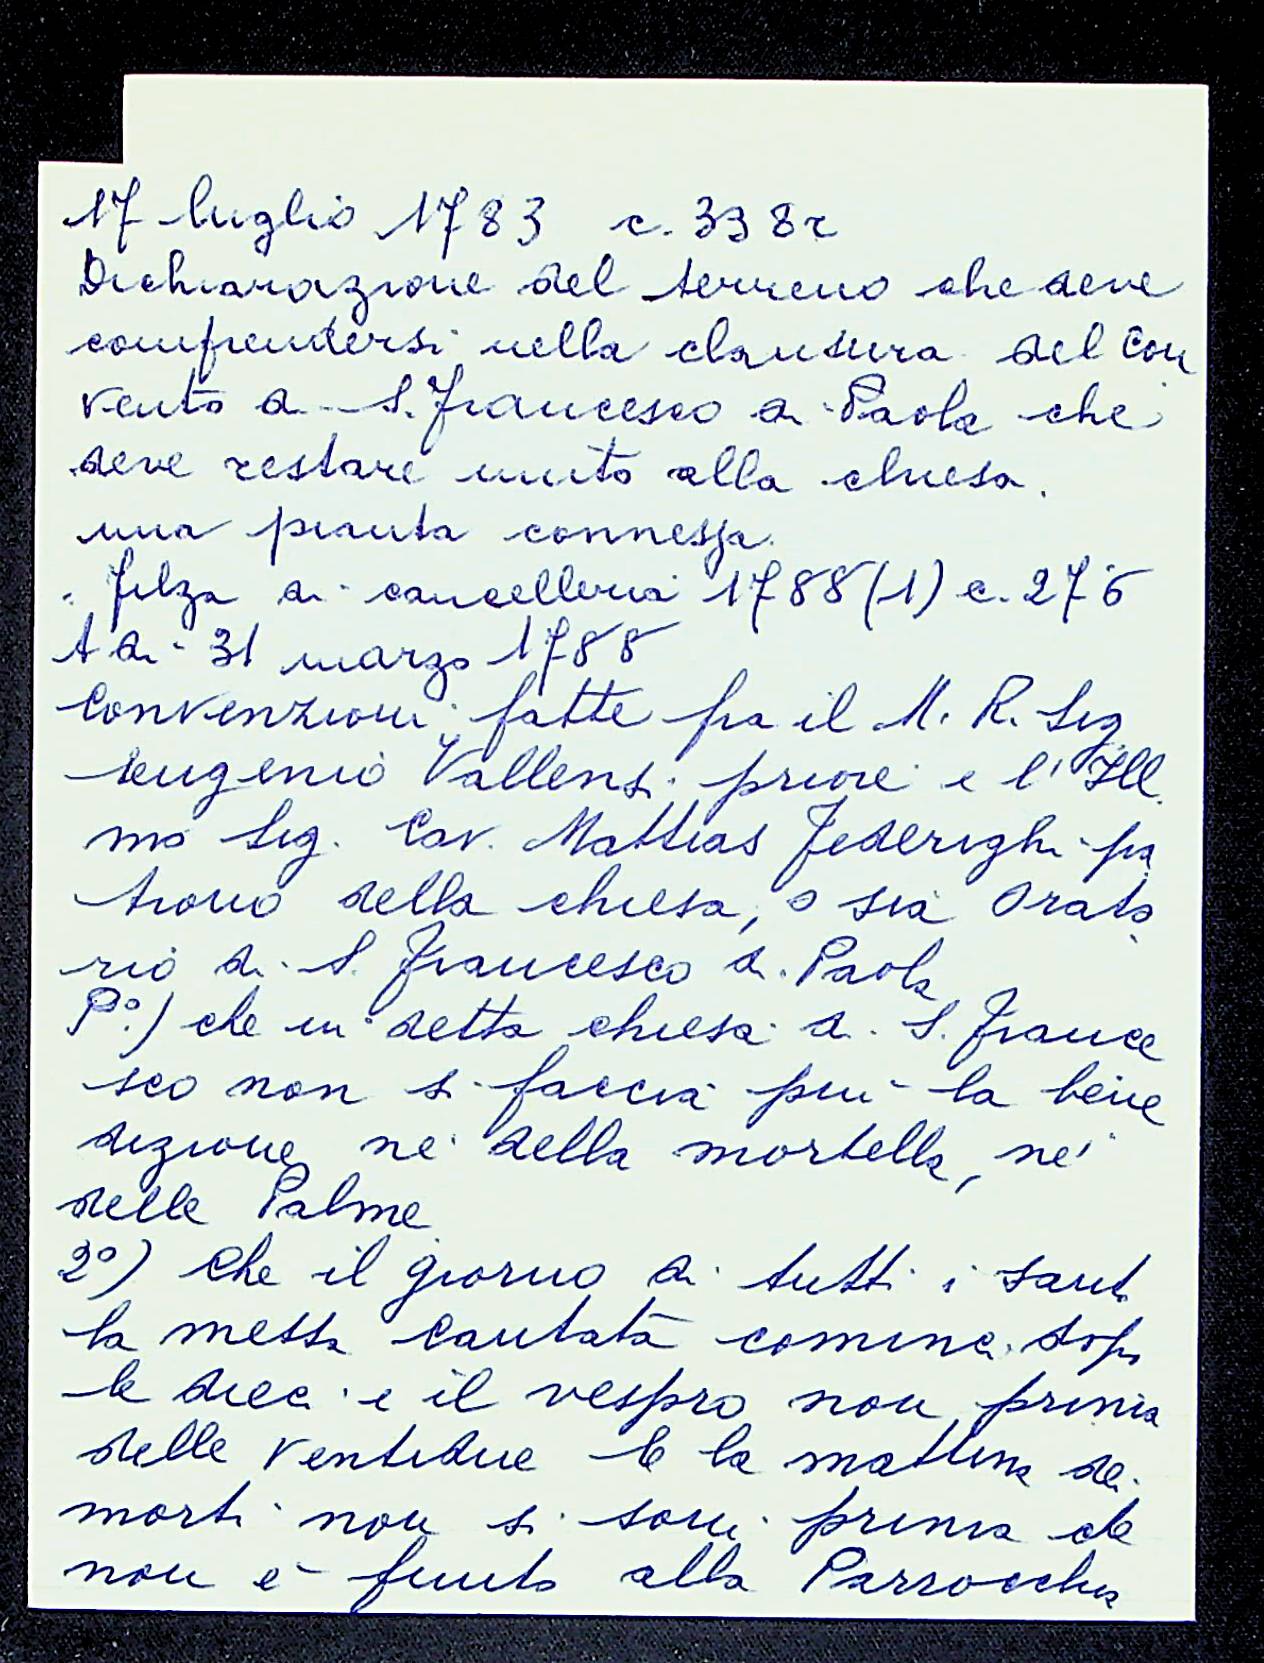 17 luglio 1783 c. 338r
Dichiarazione del terreno che deve
comprendersi nella clausura del Con
vento di S. Francesco di Paola che
deve restare unito alla chiesa.
una pianta connessa.
Filza di cancelleria 1788 (1) c. 276
A di 31 marzo 1788
Convenzioni fatte fra il M. R. Sig
Eugenio Vallensi priore e l'Ill.
mo Sig. Cav. Mattias Federighi pa
trono della chiesa, o sia Orato
rio di S. Francesco di Paola
P°:) che in detta chiesa di S. France
sco non si faccia più la bene
dizione né della mortella, né
delle Palme
2°) Che il giorno di tutti i santi
la messa cantata cominci dopo
le dieci e il vespro non prima
delle ventidue e la mattina dei
morti non si suoni prima che
non è finito alla Parrocchia